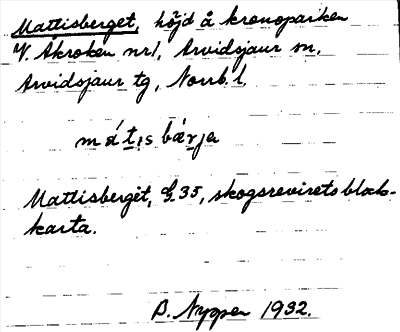 Mattisberget, höjd å kronoparken
V. Åkroken nr 1, Arvidsjaur sn,
Arvidsjaur tg, Norrb. l.
mát:isbærja
Mattisberget, G.35, skogsrevirets blad-
karta.
B. Nyppen 1932.